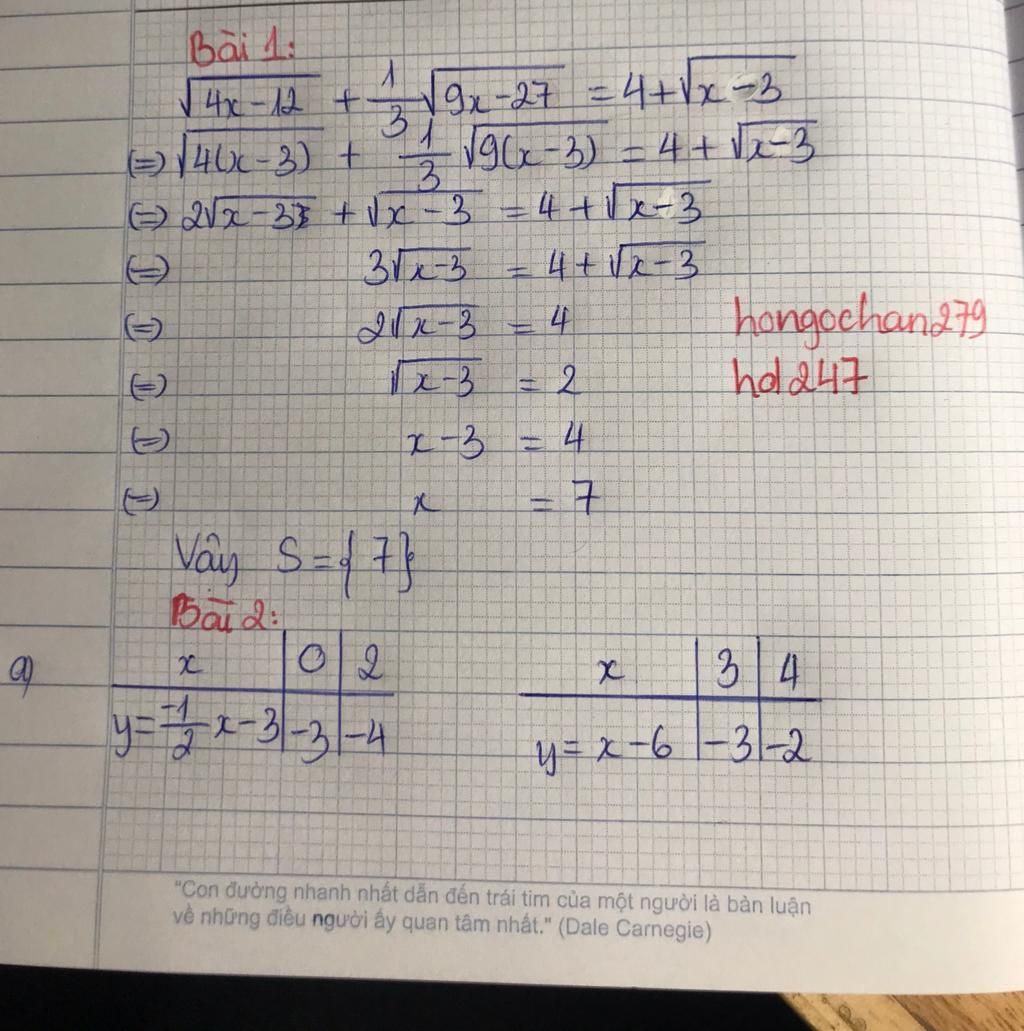 Bài 1:
√(4x-12) + 1/3 √(9x-27) = 4+√(x-3)
(=) √(4(x-3)) + 1/3 √(9(x-3)) = 4+√(x-3)
(=) 2√(x-3) + √(x-3) = 4+√(x-3)
(=) 3√(x-3) = 4+√(x-3)
(=) 2√(x-3) = 4 hongochan279
(=) √(x-3) = 2 hd247
(=) x-3 = 4
(=) x = 7
Vậy S={7}
Bài 2:
a) x | 0 | 2 x | 3 | 4
y=-1/2 x-3 | -3 | -4 y= x-6 | -3 | -2
"Con đường nhanh nhất dẫn đến trái tim của một người là bàn luận
về những điều người ấy quan tâm nhất." (Dale Carnegie)